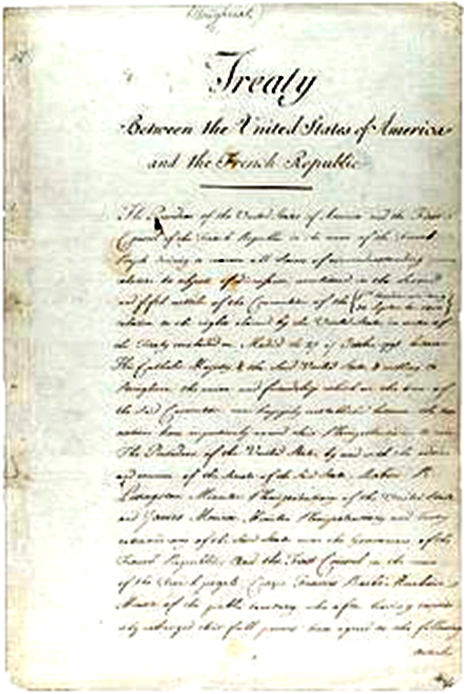 (Original)
Treaty
Between the United States of America
and the French Republic
The President of the United States of America and the First
Consul of the French Republic in the name of the French
People desiring to remove all Source of misunderstanding
relative to objects of discussion mentioned in the Second
and fifth articles of the Convention of the
relative to the rights claimed by the United States in virtue of
the Treaty concluded at Madrid the 27 of October 1795 between
His Catholic Majesty & the Said United States, & willing to
Strengthen the union and friendship which at the time of
the Said Convention was happily reestablished between the two
nations have respectively named their Plenipotentiaries to wit
The President of the United States, by and with the advice
and consent of the Senate of the Said States, Robert R.
Livingston Minister Plenipotentiary of the United States
and James Monroe Minister Plenipotentiary and Envoy
extraordinary of the Said States near the Government of the
French Republic; And the First Consul in the name
of the French people, Citizen Francis Barbé Marbois
Minister of the public treasury who after having respectively
exchanged their full powers have agreed to the following
articles